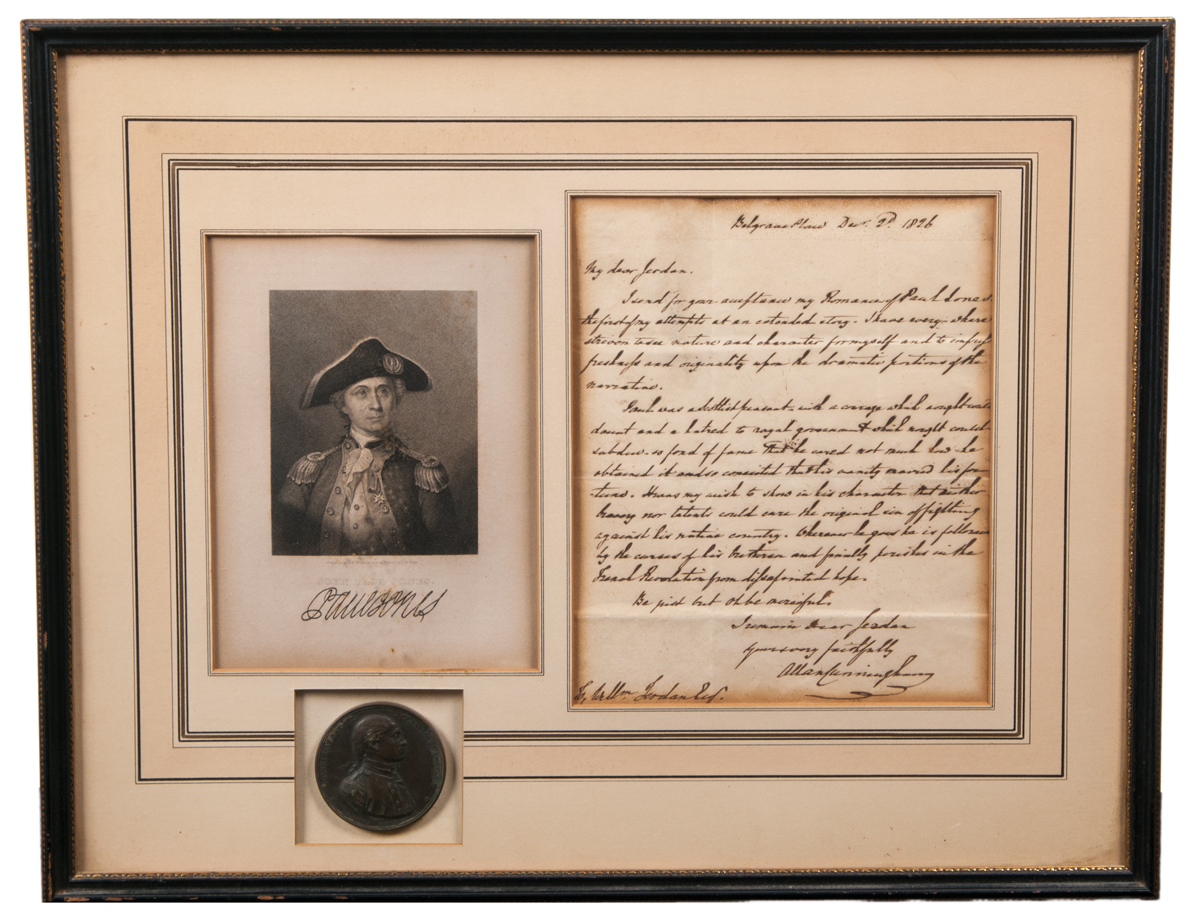 JOHN PAUL JONES.
Paul Jones
Belgrave Place Decr. 2d. 1826
My dear Jerdan.
I send for your acceptance my Romance of Paul Jones
the first of my attempts at an extended story. I have every-where
striven to see nature and character for myself and to impress
freshness and originality upon the dramatic portions of the
narrative.
Paul was a Scottish peasant with a courage which nought could
daunt and a hatred to royal government which nought could
subdue. so fond of fame that he cared not much how he
obtained it and so conceited that his vanity marred his for
-tune. It was my wish to show in his character that neither
bravery nor talents could cure the original sin of fighting
against his native country. Wherever he goes he is followed
by the curses of his brethren and finally perishes in the
French Revolution from disappointed hope.
Be just but oh be merciful.
I remain Dear Jerdan
yours very faithfully
Allan Cunningham
To, Willm. Jerdan Esq.